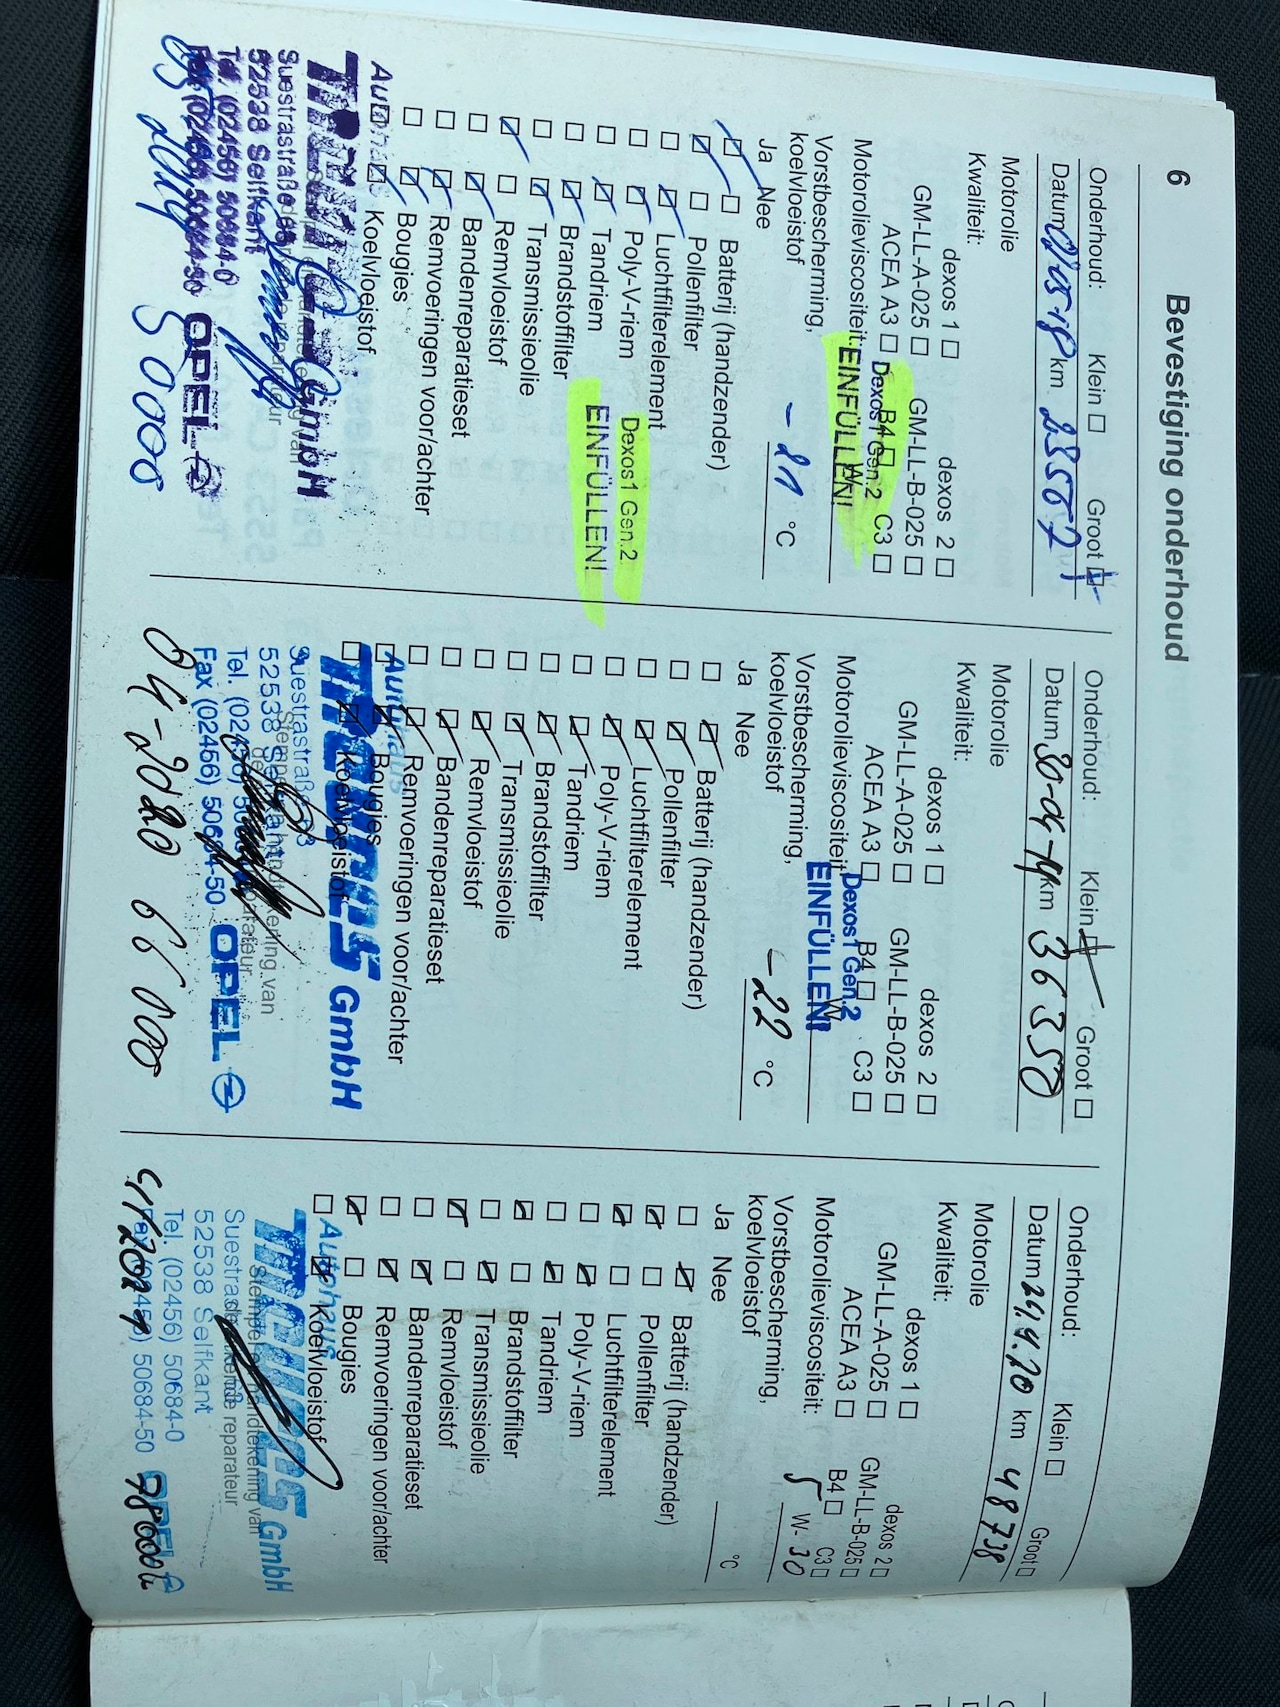 6 Bevestiging onderhoud
Onderhoud: Klein ☐ Groot ☒
Datum km 23567
Motorolie
Kwaliteit:
dexos 1 ☐ dexos 2 ☐
GM-LL-A-025 ☐ GM-LL-B-025 ☐
ACEA A3 ☐ B4 ☐ C3 ☐
Dexos1 Gen.2
Motorolieviscositeit: W
EINFÜLLEN!
Vorstbescherming,
koelvloeistof - 21 °C
Ja Nee
☒ ☐ Batterij (handzender)
☒ ☐ Pollenfilter
☐ ☒ Luchtfilterelement
☐ ☒ Poly-V-riem
Dexos1 Gen.2
☐ ☒ Tandriem
EINFÜLLEN!
☐ ☒ Brandstoffilter
☐ ☒ Transmissieolie
☒ ☐ Remvloeistof
☐ ☒ Bandenreparatieset
☐ ☒ Remvoeringen voor/achter
☐ ☒ Bougies
☐ ☒ Koelvloeistof
Autohaus
GmbH
Suestrastraße
52538 Selfkant
Tel. (02456) 50684-0
Fax (02456) 50684-50 OPEL
Onderhoud: Klein ☒ Groot ☐
Datum 30-04-19 km 36350
Motorolie
Kwaliteit:
dexos 1 ☐ dexos 2 ☐
GM-LL-A-025 ☐ GM-LL-B-025 ☐
ACEA A3 ☐ B4 ☐ C3 ☐
Dexos1 Gen.2
Motorolieviscositeit: W
EINFÜLLEN!
Vorstbescherming,
koelvloeistof - 22 °C
Ja Nee
☐ ☒ Batterij (handzender)
☐ ☒ Pollenfilter
☐ ☒ Luchtfilterelement
☐ ☒ Poly-V-riem
☐ ☒ Tandriem
☐ ☒ Brandstoffilter
☐ ☒ Transmissieolie
☐ ☒ Remvloeistof
☐ ☒ Bandenreparatieset
☐ ☒ Remvoeringen voor/achter
☐ ☒ Bougies
☐ ☒ Koelvloeistof
Autohaus
GmbH
Suestrastraße
52538 Selfkant
Tel. (02456)
Fax (02456) 50684-50 OPEL
04-2020 66000
Onderhoud: Klein ☐ Groot ☐
Datum 24.4.20 km 48738
Motorolie
Kwaliteit:
dexos 1 ☐ dexos 2 ☐
GM-LL-A-025 ☐ GM-LL-B-025 ☐
ACEA A3 ☐ B4 ☐ C3 ☐
Motorolieviscositeit: 5 W- 30
Vorstbescherming,
koelvloeistof °C
Ja Nee
☐ ☒ Batterij (handzender)
☒ ☐ Pollenfilter
☒ ☐ Luchtfilterelement
☐ ☒ Poly-V-riem
☐ ☒ Tandriem
☒ ☐ Brandstoffilter
☐ ☒ Transmissieolie
☒ ☐ Remvloeistof
☐ ☒ Bandenreparatieset
☐ ☒ Remvoeringen voor/achter
☒ ☐ Bougies
☐ ☒ Koelvloeistof
Autohaus
GmbH
52538 Selfkant
Tel. (02456) 50684-0
50684-50 OPEL